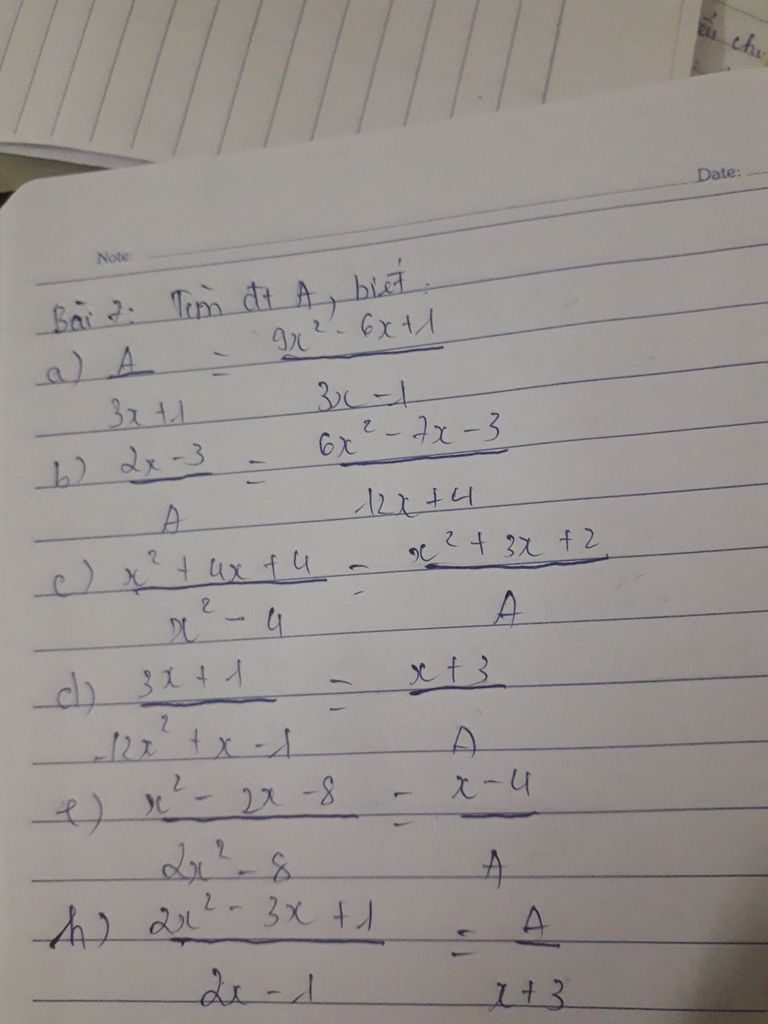 ểu
Date:
Note:
Bài 7: Tìm đt A, biết:
a) A/(3x+1) = (9x² - 6x + 1)/(3x - 1)
b) (2x - 3)/A = (6x² - 7x - 3)/(12x + 4)
c) (x² + 4x + 4)/(x² - 4) = (x² + 3x + 2)/A
d) (3x + 1)/(12x² + x - 1) = (x + 3)/A
e) (x² - 2x - 8)/(2x² - 8) = (x - 4)/A
h) (2x² - 3x + 1)/(2x - 1) = A/(x + 3)